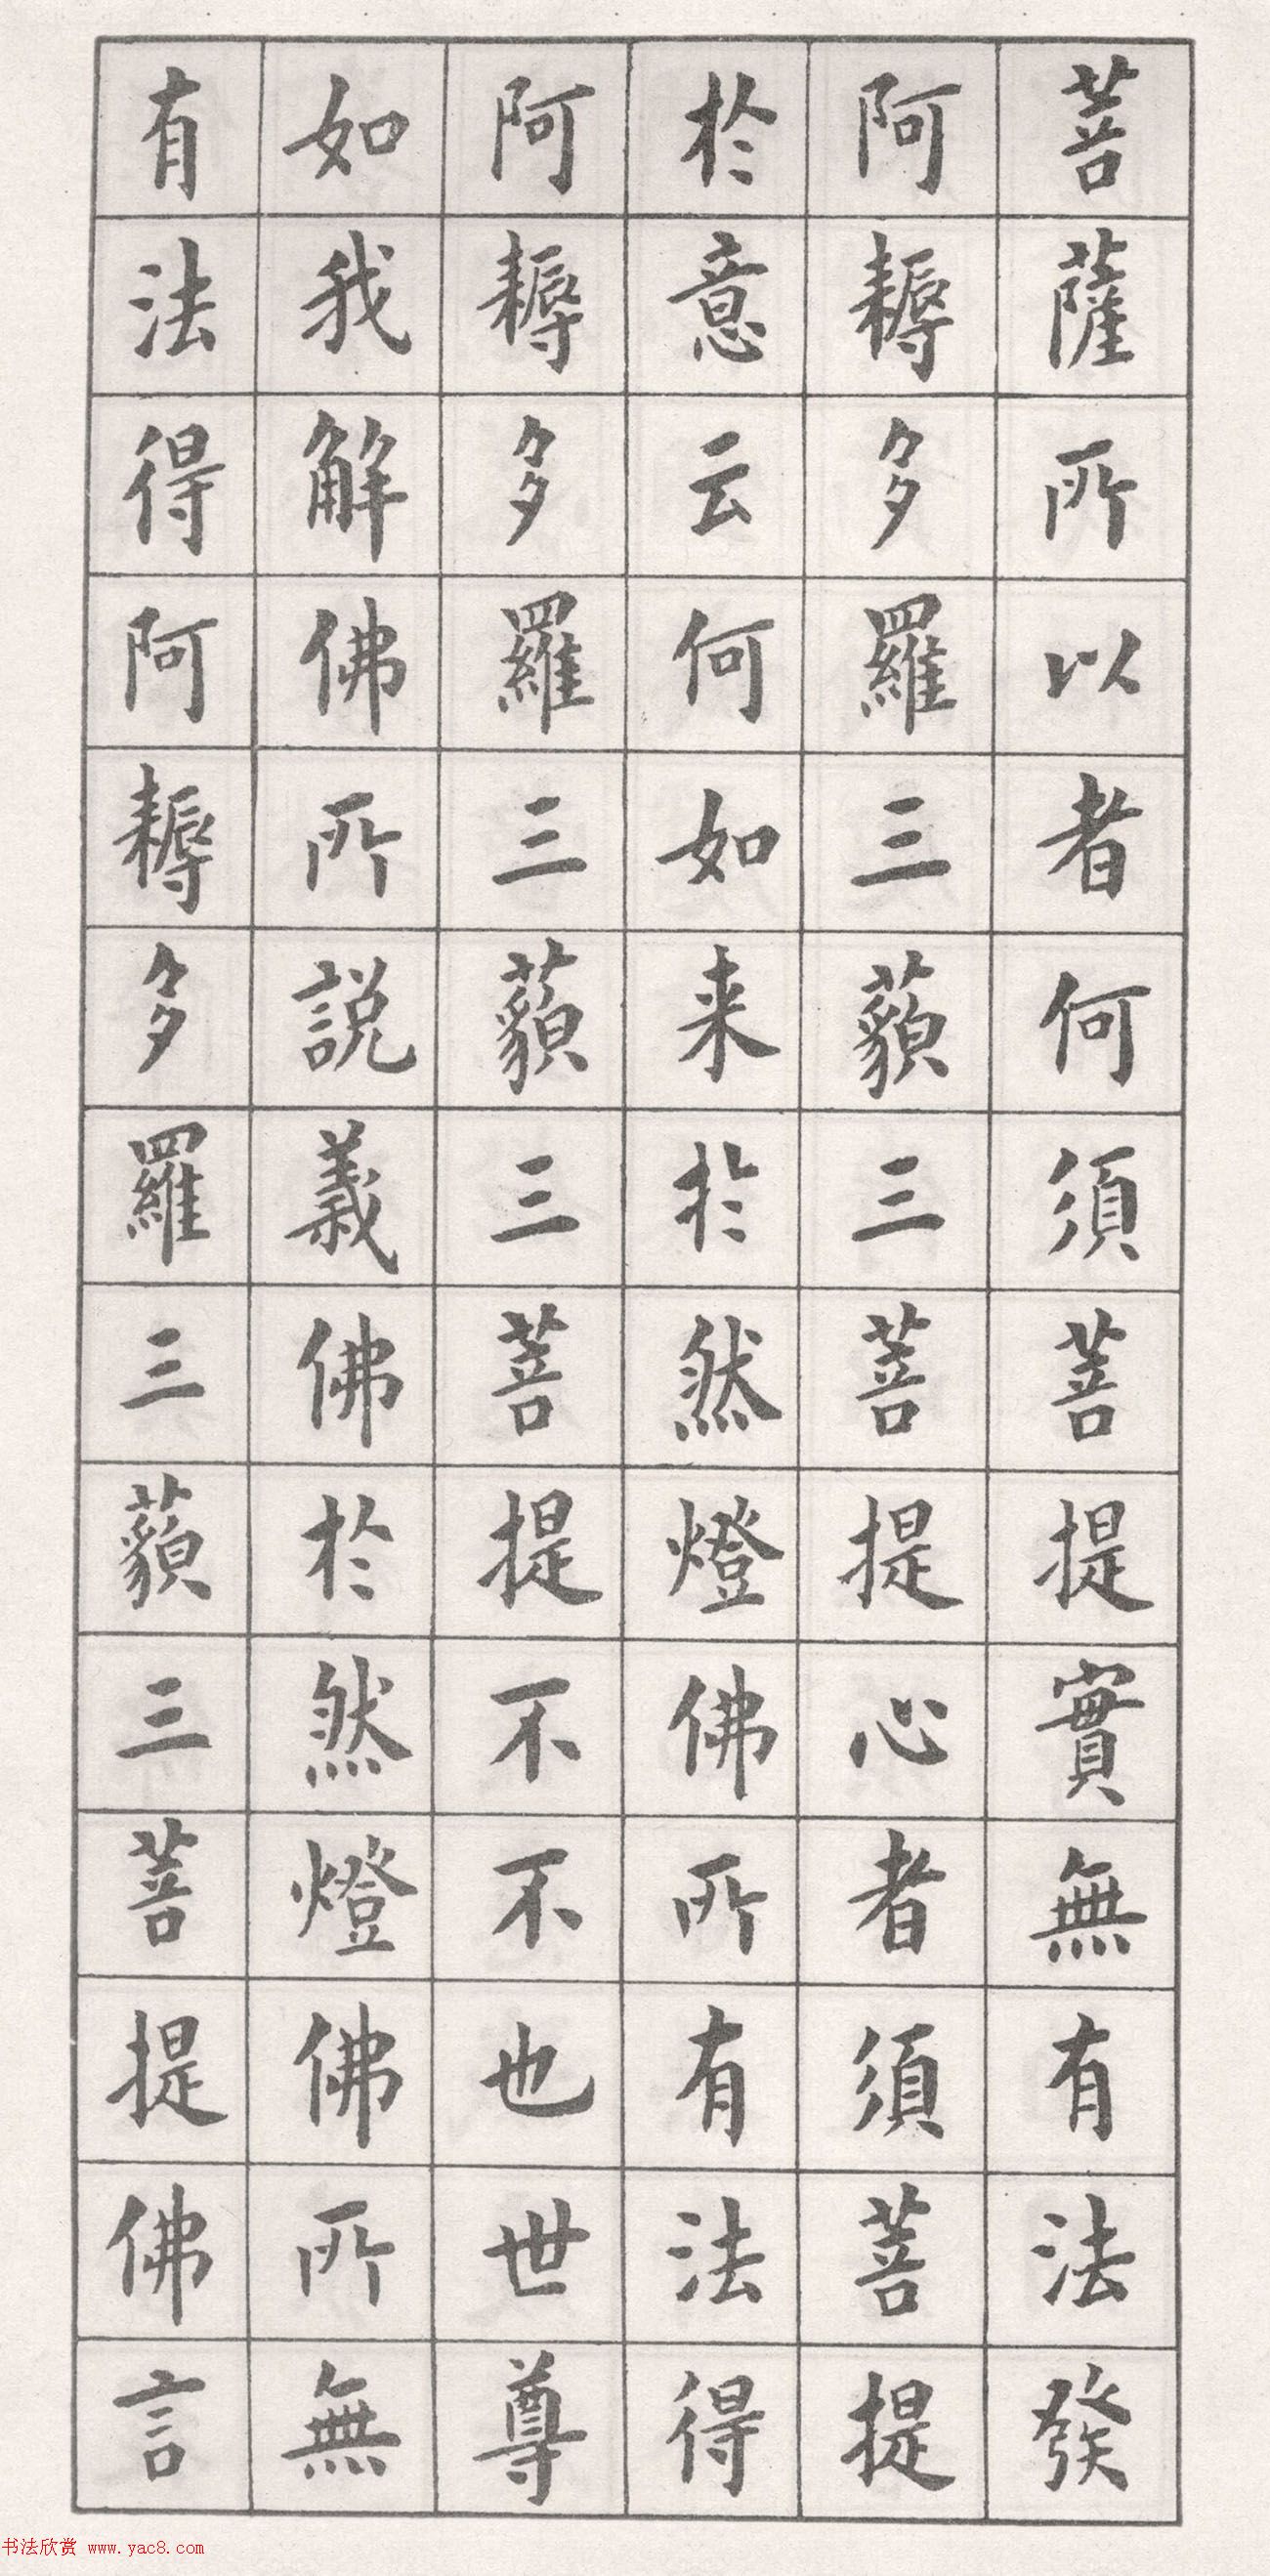 菩薩所以者何須菩提實無有法發
阿耨多羅三藐三菩提心者須菩提
於意云何如来於然燈佛所有法得
阿耨多羅三藐三菩提不不也世尊
如我解佛所説義佛於然燈佛所無
有法得阿耨多羅三藐三菩提佛言
书法欣赏 www.yac8.com